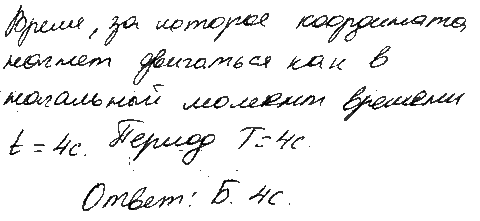 Время, за которое координата
начнет двигаться как в
начальный момент времени
t = 4с. Период T = 4с.
Ответ: Б. 4с.